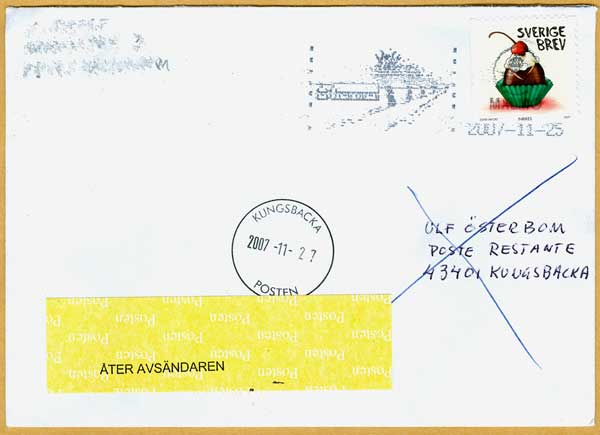 SVERIGE
BREV
2007-11-25
KUNGSBACKA
2007-11-27
POSTEN
ULF ÖSTERBOM
POSTE RESTANTE
43401 KUNGSBACKA
Posten Posten Posten Posten
Posten Posten Posten Posten
Posten Posten Posten Posten
ÅTER AVSÄNDAREN